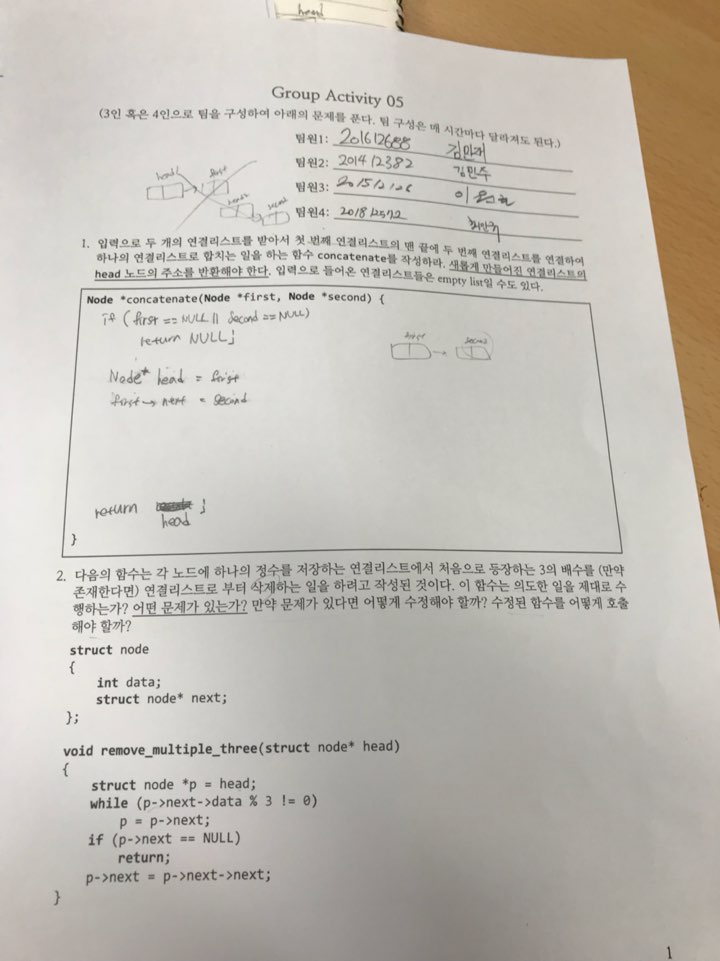 head
Group Activity 05
(3인 혹은 4인으로 팀을 구성하여 아래의 문제를 푼다. 팀 구성은 매 시간마다 달라져도 된다.)
팀원1: 201612688 김민재
팀원2: 201412382 김민주
팀원3: 이
팀원4: 201812572
head first
second
1. 입력으로 두 개의 연결리스트를 받아서 첫 번째 연결리스트의 맨 끝에 두 번째 연결리스트를 연결하여
하나의 연결리스트로 합치는 일을 하는 함수 concatenate를 작성하라. 새롭게 만들어진 연결리스트의
head 노드의 주소를 반환해야 한다. 입력으로 들어온 연결리스트들은 empty list일 수도 있다.
Node *concatenate(Node *first, Node *second) {
if ( first == NULL || second == NULL)
return NULL;
first second
Node* head = first
first → next = second
return ;
head
}
2. 다음의 함수는 각 노드에 하나의 정수를 저장하는 연결리스트에서 처음으로 등장하는 3의 배수를 (만약
존재한다면) 연결리스트로 부터 삭제하는 일을 하려고 작성된 것이다. 이 함수는 의도한 일을 제대로 수
행하는가? 어떤 문제가 있는가? 만약 문제가 있다면 어떻게 수정해야 할까? 수정된 함수를 어떻게 호출
해야 할까?
struct node
{
int data;
struct node* next;
};
void remove_multiple_three(struct node* head)
{
struct node *p = head;
while (p->next->data % 3 != 0)
p = p->next;
if (p->next == NULL)
return;
p->next = p->next->next;
}
1